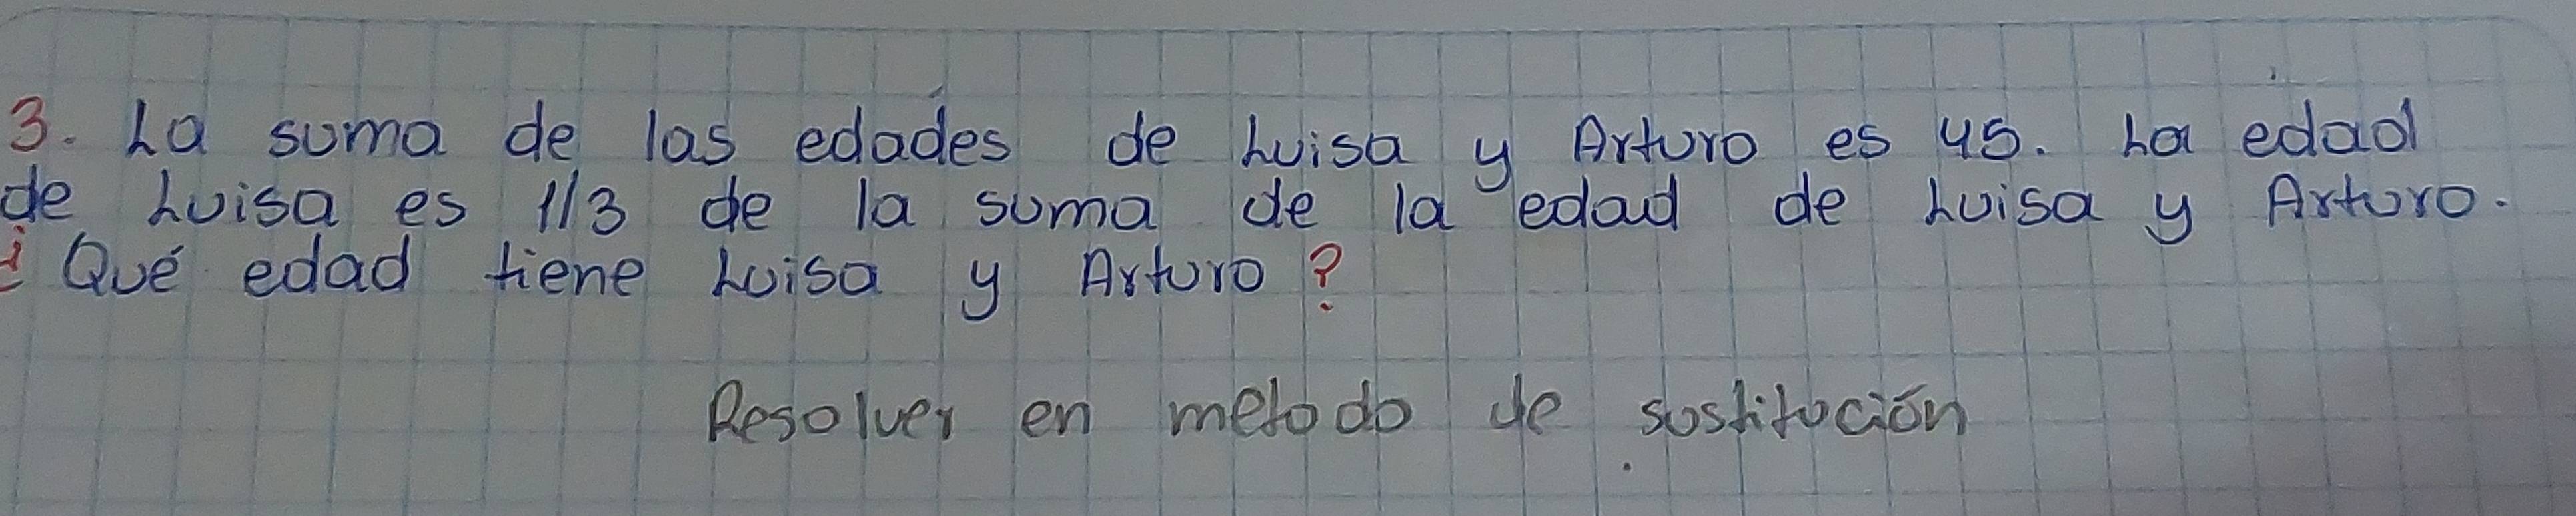 3. La suma de las edades de Luisa y Arturo es 45. La edad
de Luisa es 1/3 de la suma de la edad de Luisa y Arturo.
¿Qué edad tiene Luisa y Arturo?
Resolver en metodo de sustitución